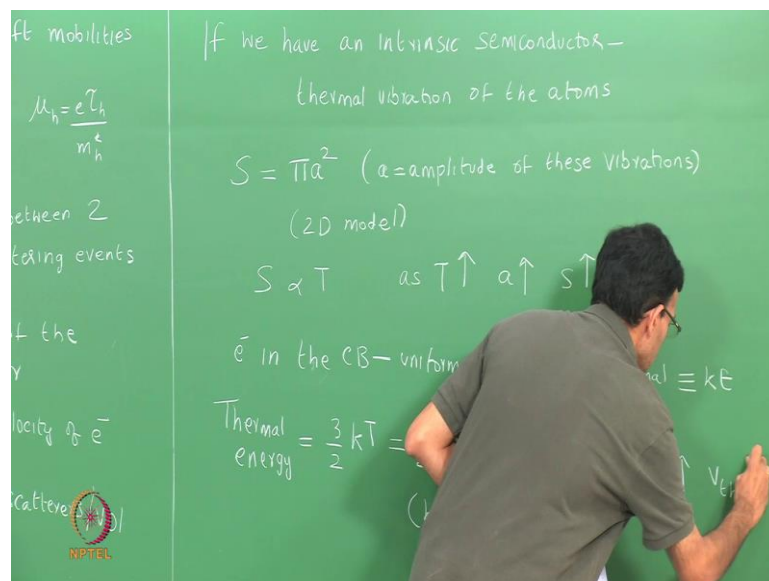 ft mobilities
μh = eτh / mh*
etween 2
tering events
f the
locity of e-
scatterers
NPTEL
If we have an intrinsic semiconductor –
thermal vibration of the atoms
S = πa² (a = amplitude of these vibrations)
(2D model)
S ∝ T as T↑ a↑ S↑
e- in the CB – uniform
≡ KE
Thermal energy = 3/2 kT =
↑ Vth